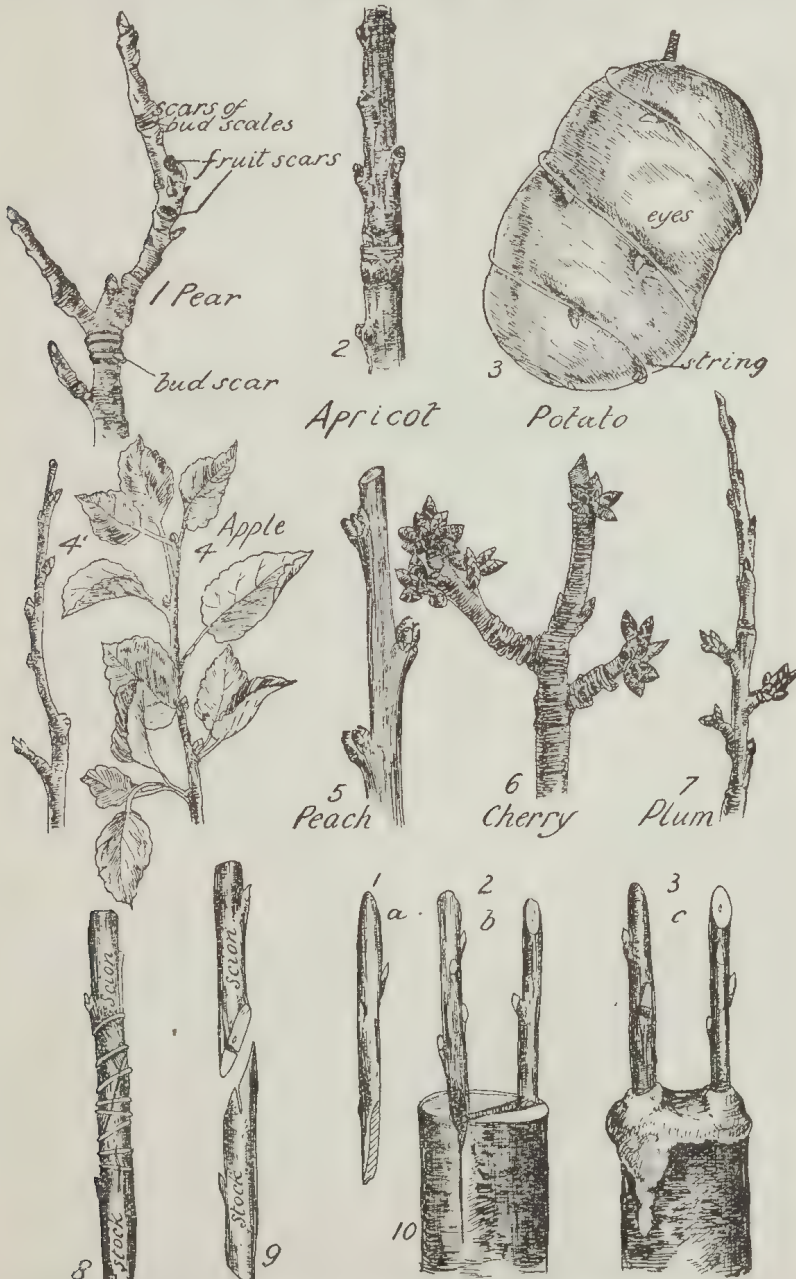 scars of
bud scales
fruit scars
1 Pear
bud scar
2
Apricot
eyes
3
string
Potato
4'
4 Apple
5
Peach
6
Cherry
7
Plum
Scion
Stock
8
Scion
Stock
9
1
a.
2
b
3
c
10